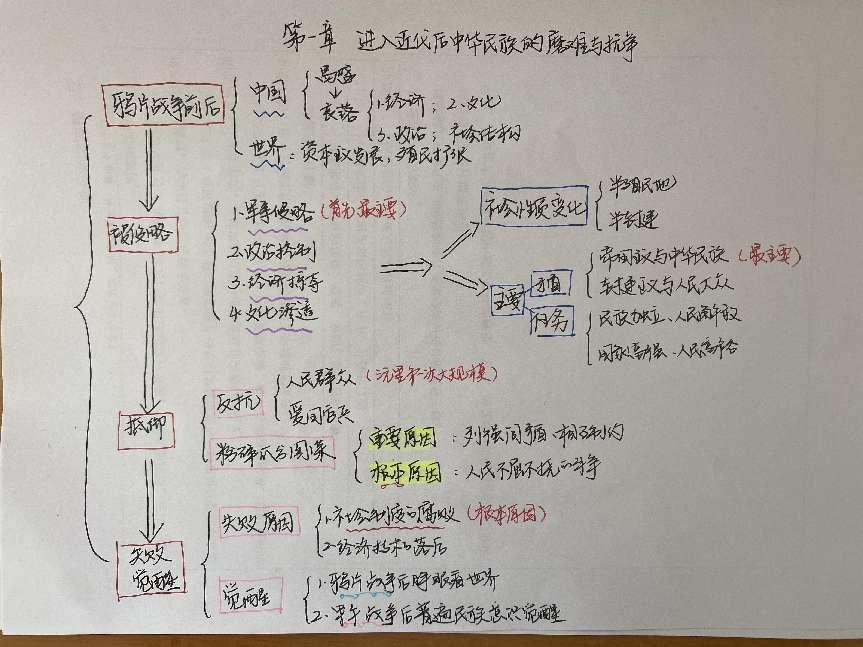 第一章 进入近代后中华民族的磨难与抗争
鸦片战争前后
中国
高盛
衰落
1.经济；2.文化
3.政治；社会结构
世界：资本主义发展，殖民扩张
被侵略
1.军事侵略（首先最主要）
2.政治控制
3.经济掠夺
4.文化渗透
社会性质变化
半殖民地
半封建
主要
矛盾
帝国主义与中华民族（最主要）
封建主义与人民大众
任务
民族独立、人民解放
国家富强、人民富裕
抵御
反抗
人民群众（三元里第一次大规模）
爱国官兵
粉碎瓜分图谋
重要原因：列强间矛盾、相互制约
根本原因：人民不屈不挠的斗争
失败
觉醒
失败原因
1.社会制度的腐败（根本原因）
2.经济技术的落后
觉醒
1.鸦片战争后睁眼看世界
2.甲午战争后普遍民族意识觉醒